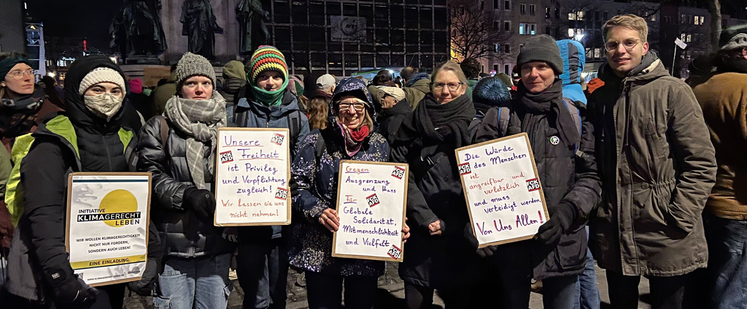 INITIATIVE
KLIMAGERECHT
LEBEN
WIR WOLLEN NICHT NUR
FORDERN,
EINE ZUGABE.
Unsere
Freiheit
ist Privileg
und Verpflichtung
zugleich!
Wir lassen sie
uns nicht nehmen!
Gegen
Ausgrenzung
und Hass.
Für
Globale
Solidarität,
Mitmenschlichkeit
und Vielfalt.
Die Würde
des Menschen
ist
angreifbar und verletzlich
und muss
verteidigt werden
Von Uns Allen!